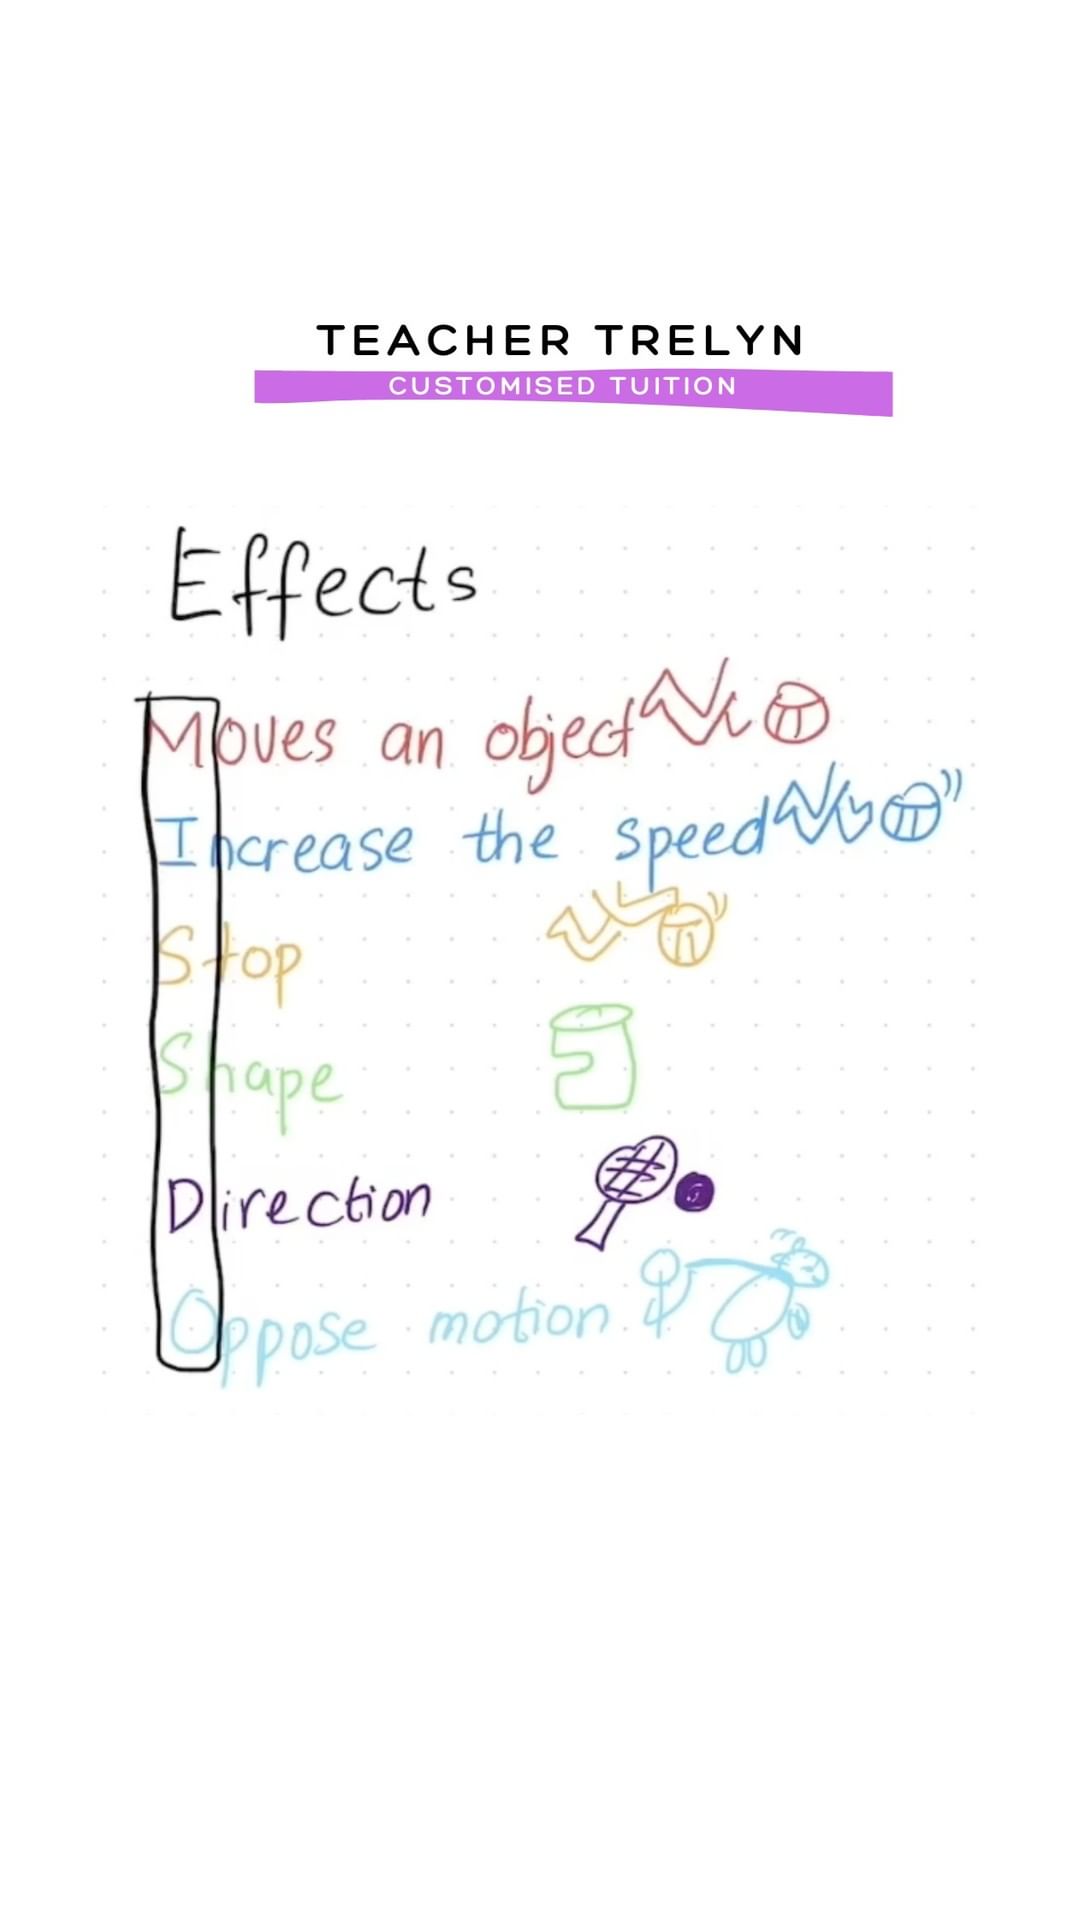 TEACHER TRELYN
CUSTOMISED TUITION
Effects
Moves an object
Increase the speed
Stop
Shape
Direction
Oppose motion